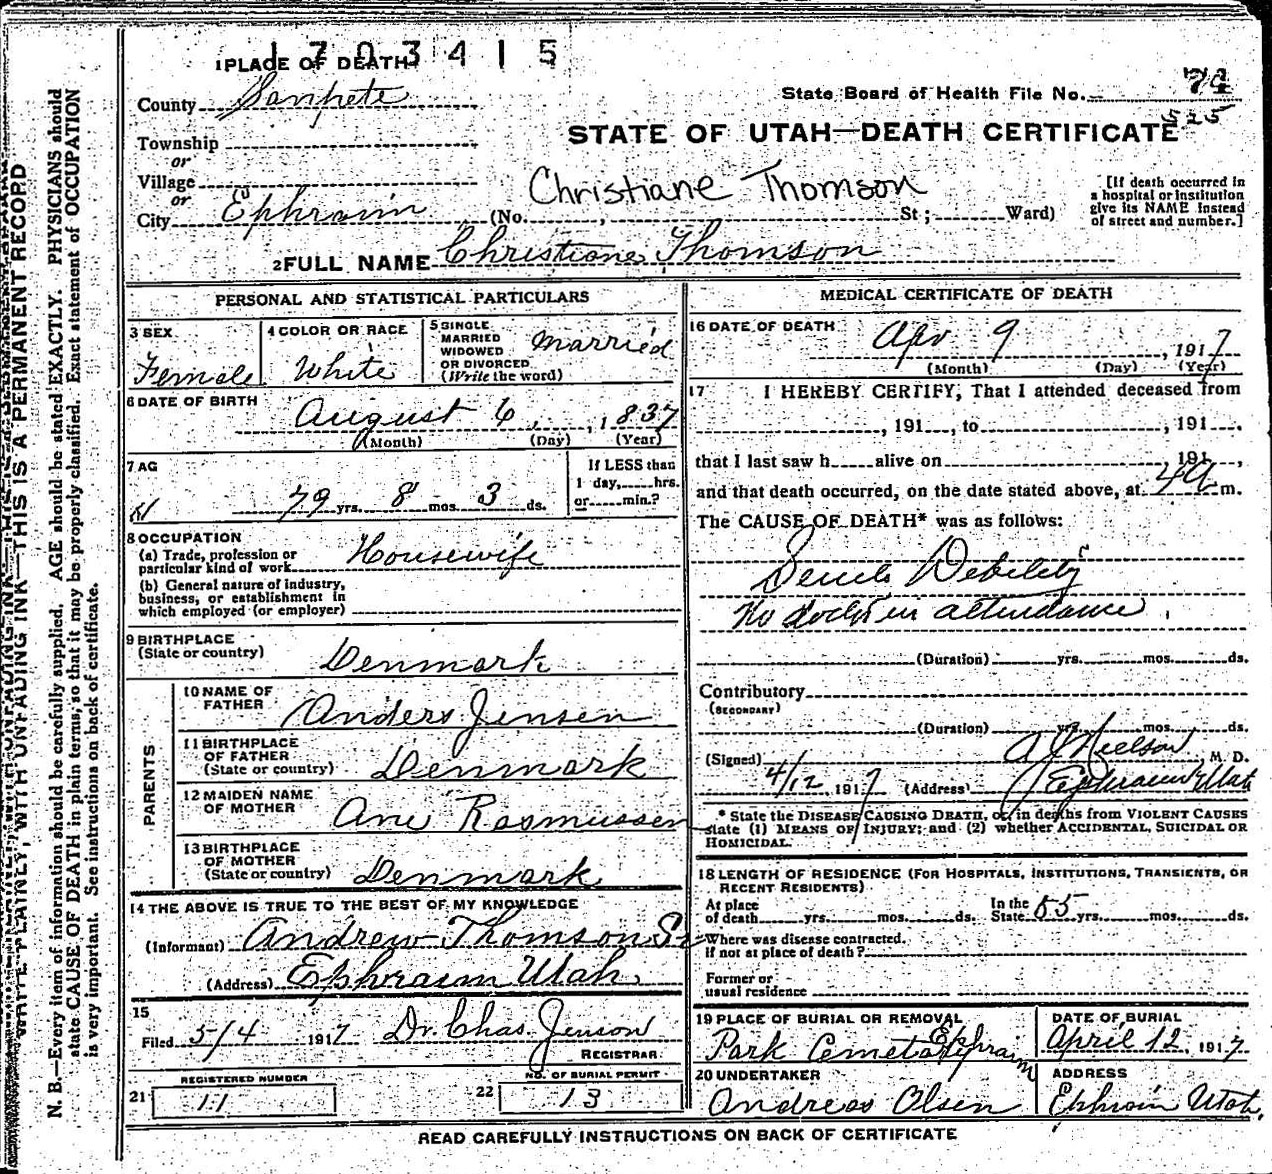 1703415
1 PLACE OF DEATH
County Sanpete
State Board of Health File No. 74
525
Township
or
Village
or
City Ephraim (No. , St; Ward)
STATE OF UTAH—DEATH CERTIFICATE
Christiane Thomson
[If death occurred in
a hospital or institution
give its NAME instead
of street and number.]
2 FULL NAME Christiane Thomson
PERSONAL AND STATISTICAL PARTICULARS
3 SEX
Female
4 COLOR OR RACE
White
5 SINGLE
MARRIED
WIDOWED
OR DIVORCED
(Write the word)
Married
6 DATE OF BIRTH
August 6, 1837
(Month) (Day) (Year)
7 AG
79 yrs. 8 mos. 3 ds.
If LESS than
1 day, hrs.
or min.?
8 OCCUPATION
(a) Trade, profession or
particular kind of work Housewife
(b) General nature of industry,
business, or establishment in
which employed (or employer)
9 BIRTHPLACE
(State or country)
Denmark
PARENTS
10 NAME OF
FATHER
Anders Jensen
11 BIRTHPLACE
OF FATHER
(State or country) Denmark
12 MAIDEN NAME
OF MOTHER
Ane Rasmussen
13 BIRTHPLACE
OF MOTHER
(State or country) Denmark
14 THE ABOVE IS TRUE TO THE BEST OF MY KNOWLEDGE
(Informant) Andrew Thomson Sr
(Address) Ephraim Utah.
15
Filed 5/4 1917 Dr. Chas. Jenson
REGISTRAR
21 REGISTERED NUMBER
11
22 NO. OF BURIAL PERMIT
13
MEDICAL CERTIFICATE OF DEATH
16 DATE OF DEATH
Apr 9, 1917
(Month) (Day) (Year)
17 I HEREBY CERTIFY, That I attended deceased from
, 191 , to , 191 .
that I last saw h alive on 191 ,
and that death occurred, on the date stated above, at 4 a m.
The CAUSE OF DEATH* was as follows:
Senile Debility
No doctor in attendance.
(Duration) yrs. mos. ds.
Contributory
(SECONDARY)
(Duration) yrs. mos. ds.
(Signed) A J Nielson M. D.
4/12 1917 (Address) Ephraim Utah
* State the DISEASE CAUSING DEATH, or, in deaths from VIOLENT CAUSES
state (1) MEANS OF INJURY; and (2) whether ACCIDENTAL, SUICIDAL OR
HOMICIDAL.
18 LENGTH OF RESIDENCE (FOR HOSPITALS, INSTITUTIONS, TRANSIENTS, OR
RECENT RESIDENTS)
At place
of death yrs. mos. ds.
In the
State 55 yrs. mos. ds.
Where was disease contracted.
if not at place of death?
Former or
usual residence
19 PLACE OF BURIAL OR REMOVAL
Park Ephraim
DATE OF BURIAL
April 12, 1917
20 UNDERTAKER
Andreas Olsen
ADDRESS
Ephraim Utah.
READ CAREFULLY INSTRUCTIONS ON BACK OF CERTIFICATE
WRITE PLAINLY, WITH UNFADING INK—THIS IS A PERMANENT RECORD
N. B.—Every item of information should be carefully supplied. AGE should be stated EXACTLY. PHYSICIANS should
state CAUSE OF DEATH in plain terms, so that it may be properly classified. Exact statement of OCCUPATION
is very important. See instructions on back of certificate.